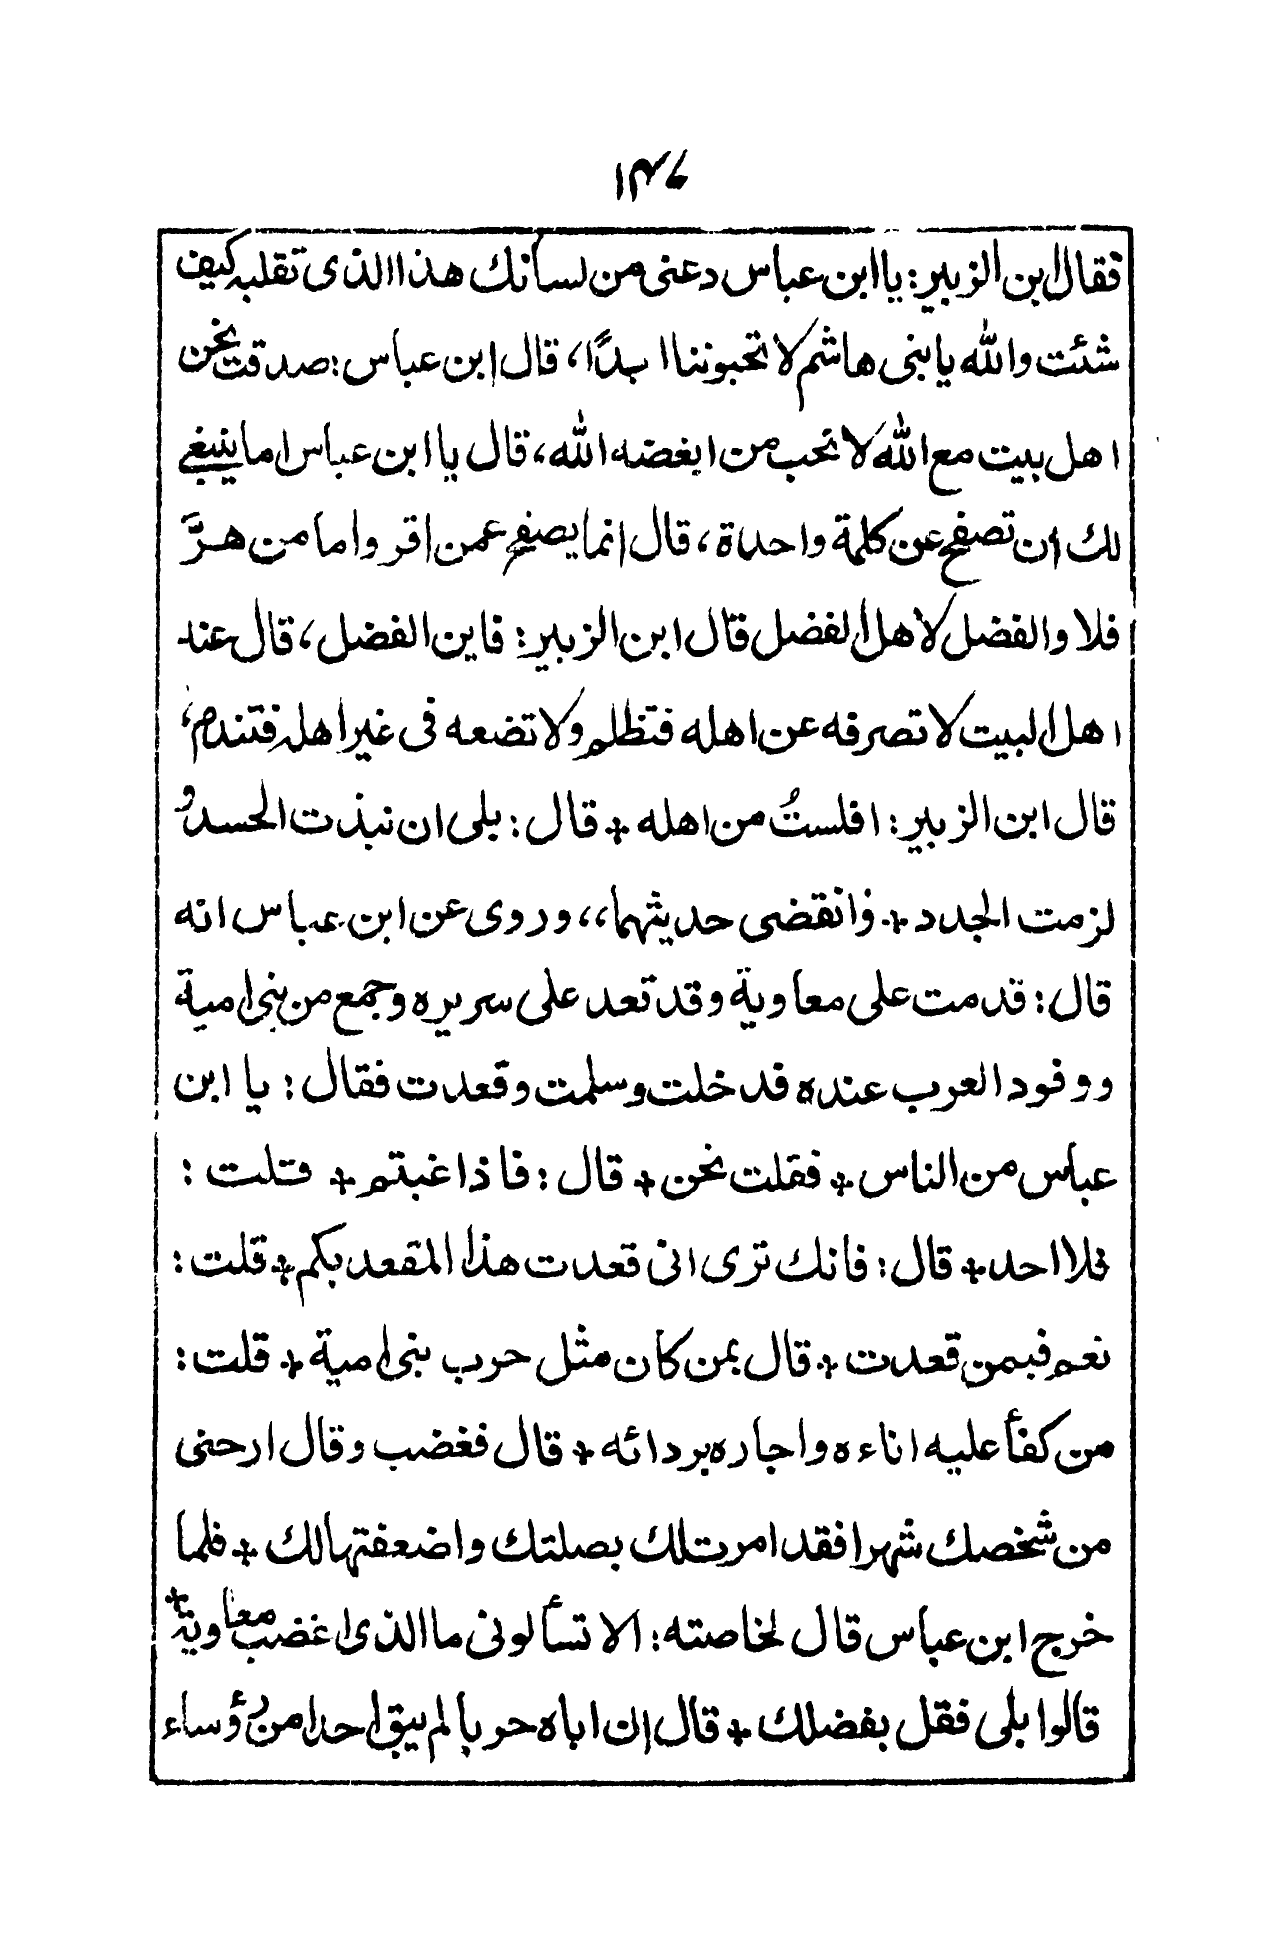 ۱۳۶
فقال ابن الزبير: يا ابن عباس دعنى من لسانك هذا الذى تقلبه كيف
شئت والله يا بنى هاشم لا تحبوننا ابدًا، قال ابن عباس: صدقت نحن
اهل بيت مع الله لا نحب من ابغضه الله، قال يا ابن عباس اما ينبغى
لك ان تصفح عن كلمة واحدة، قال انما يصفح عمن اقر واما من هرَّ
فلا والفضل لاهل الفضل قال ابن الزبير: فاين الفضل، قال عند
اهل البيت لا تصرفه عن اهله فتظلم ولا تضعه فى غير اهله فتندم،
قال ابن الزبير: افلستُ من اهله + قال: بلى ان نبذت الحسد و
لزمت الجدد + وانقضى حديثهما،، وروى عن ابن عباس انه
قال: قدمت على معاوية وقد تعد على سريره وجمع من بنى امية
ووفود العرب عنده فدخلت وسلمت وقعدت فقال: يا ابن
عباس من الناس + فقلت نحن + قال: فاذا غبتم + قلت:
فلا احد + قال: فانك ترى انى قعدت هذا المقعد بكم + قلت:
نعم فبمن قعدت + قال بمن كان مثل حرب بنى امية + قلت:
من كفأ عليه اناءه واجاره بردائه + قال فغضب وقال ارحنى
من شخصك شهرا فقد امرت لك بصلتك واضعفتها لك + فلما
خرج ابن عباس قال لخاصته: الا تسألونى ما الذى اغضب معاوية +
قالوا بلى فقل بفضلك + قال ان اباه حربا لم يبق احدا من رؤساء